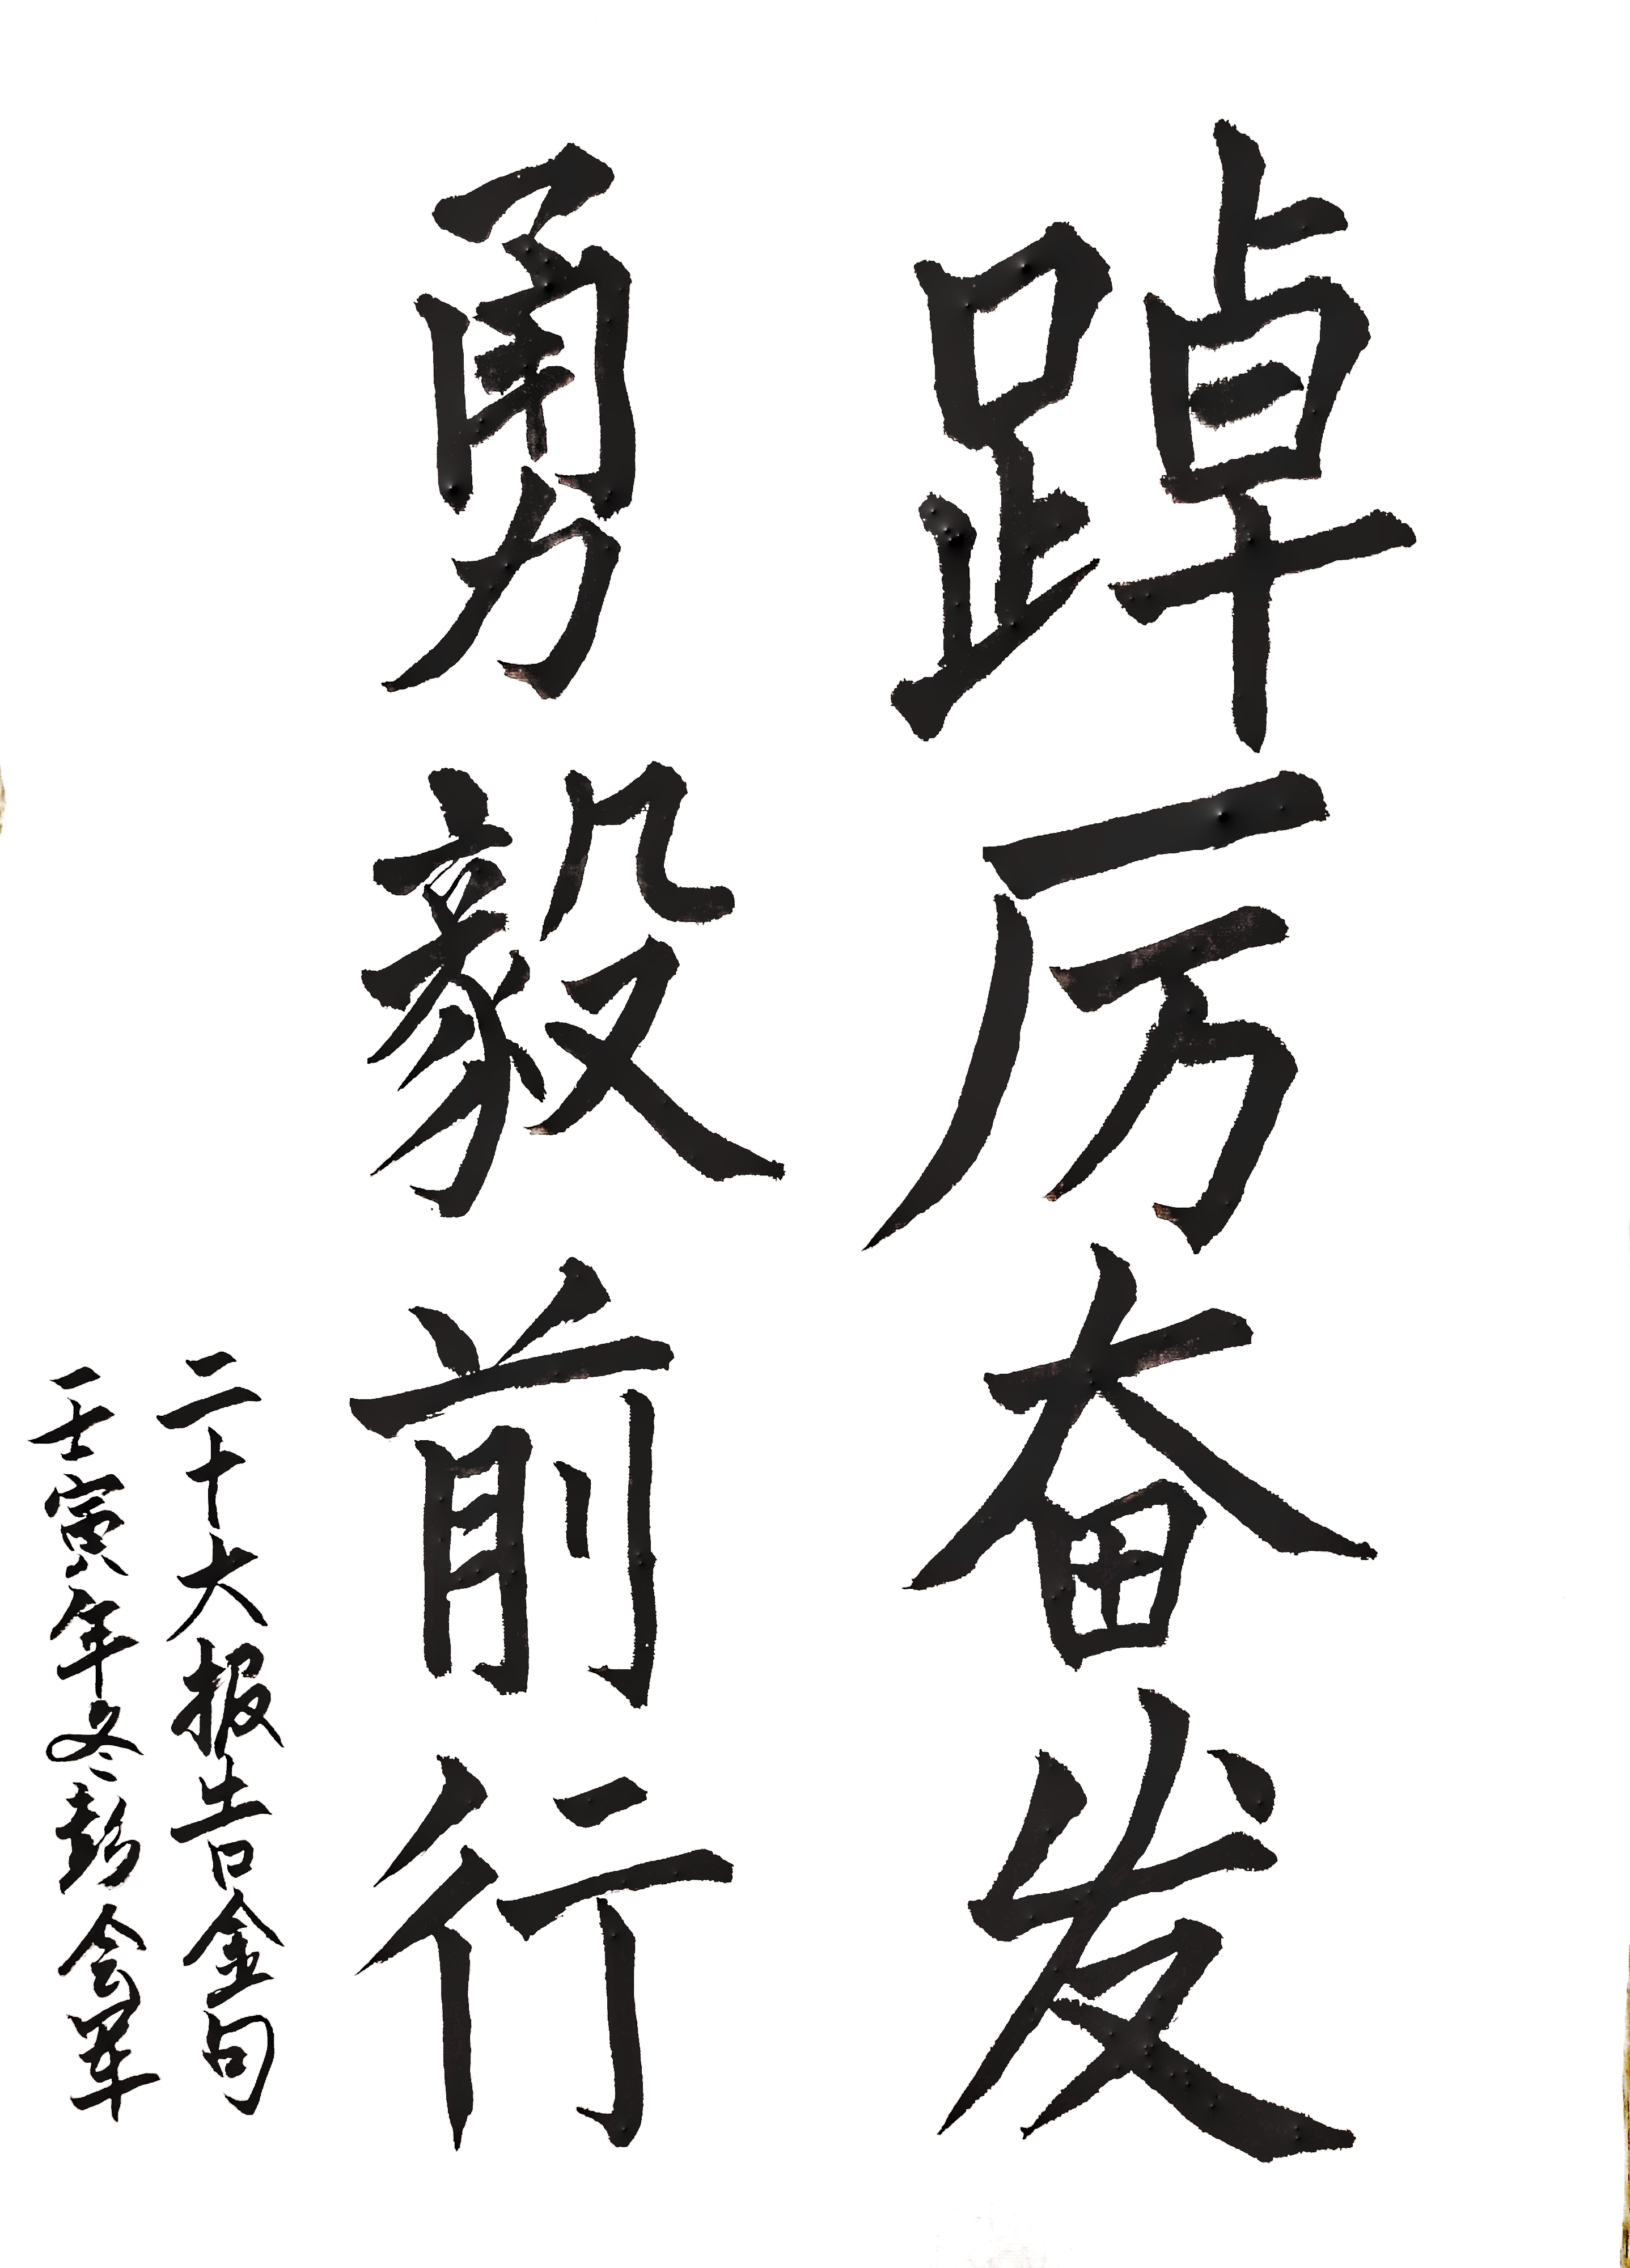 踔厉奋发
勇毅前行
二十大报告金句
壬寅年冬彭会军